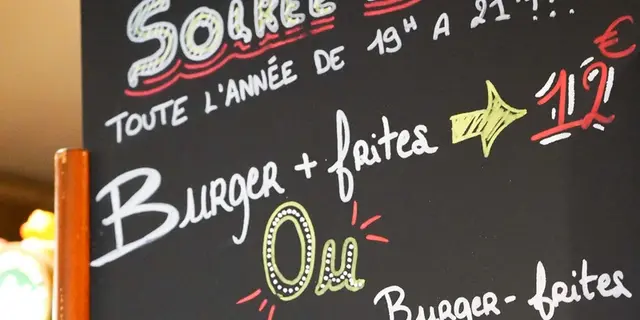 SOIRÉE
TOUTE L'ANNÉE DE 19H A 21H !!!
BURGER + frites → 12 €
Ou
BURGER - frites